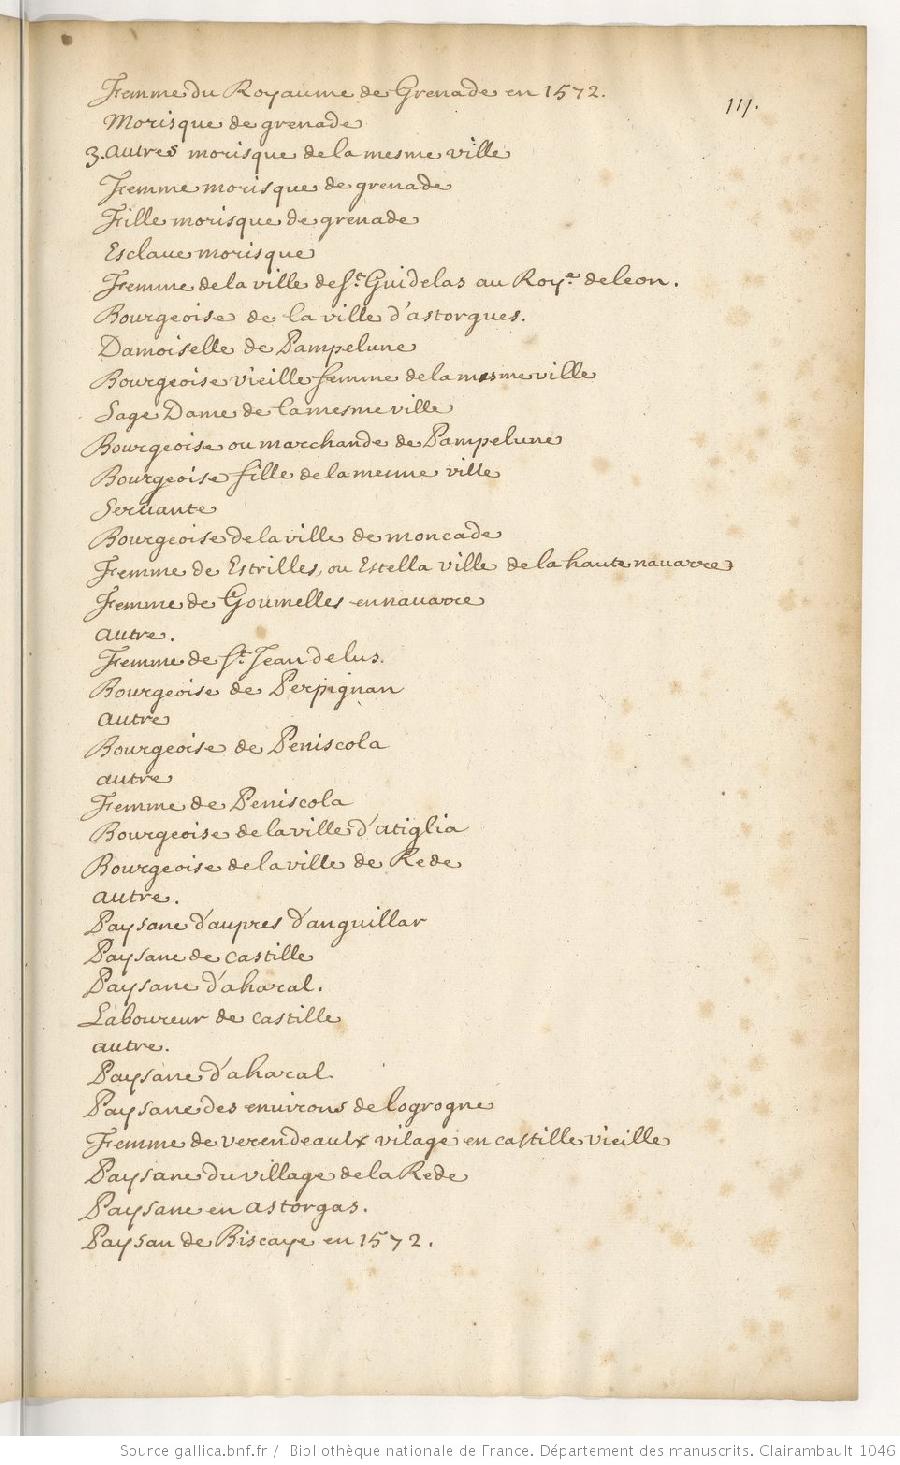 Femme du Royaume de Grenade en 1572.
111.
Morisque de grenade
3. autres morisque de la mesme ville
Femme morisque de grenade
Fille morisque de grenade
Esclave morisque
Femme de la ville de St. Guidelas au Roye. de leon.
Bourgeoise de la ville d'astorgues.
Damoiselle de Pampelune
Bourgeoise vieille femme de la mesme ville
Sage Dame de la mesme ville
Bourgeoise ou marchande de Pampelune
Bourgeoise fille de la mesme ville
Servante
Bourgeoise de la ville de moncade
Femme de Estrilles, ou Estella ville de la haute navarre
Femme de Goumelles en navarre
autre.
Femme de St. Jean de lus.
Bourgeoise de Perpignan
autre
Bourgeoise de Peniscola
autre
Femme de Peniscola
Bourgeoise de la ville d'atiglia
Bourgeoise de la ville de Rede
autre.
Paysane d'aupres d'anguillar
Paysane de castille
Paysane d'aharal.
Laboureur de castille
autre.
Paysane d'aharal.
Paysane des environs de logrogne
Femme de verendeaulx vilage en castille vieille
Paysane du village de la Rede
Paysane en astorgas.
Paysan de Biscaye en 1572.
Source gallica.bnf.fr / Bibliothèque nationale de France. Département des manuscrits. Clairambault 1046